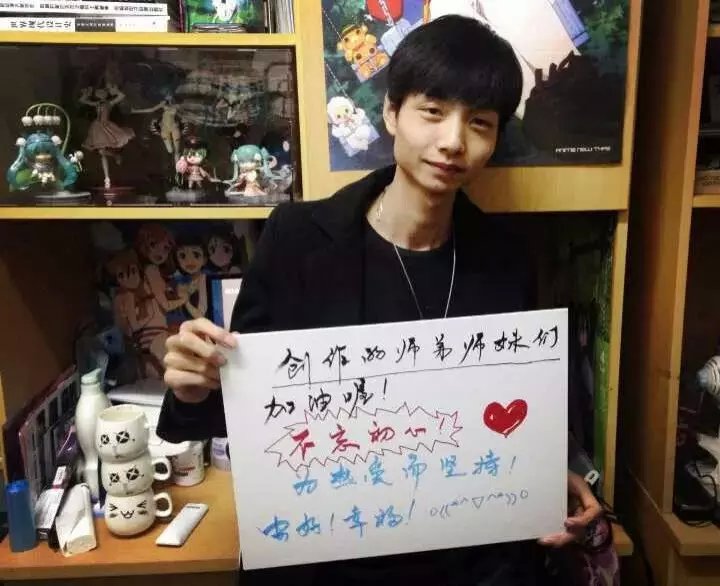 世界现代设计史
ANIME NEW TYPE
创作的师弟师妹们
加油喔！
不忘初心！
为热爱而坚持！
安好！幸福！o((*^▽^*))o